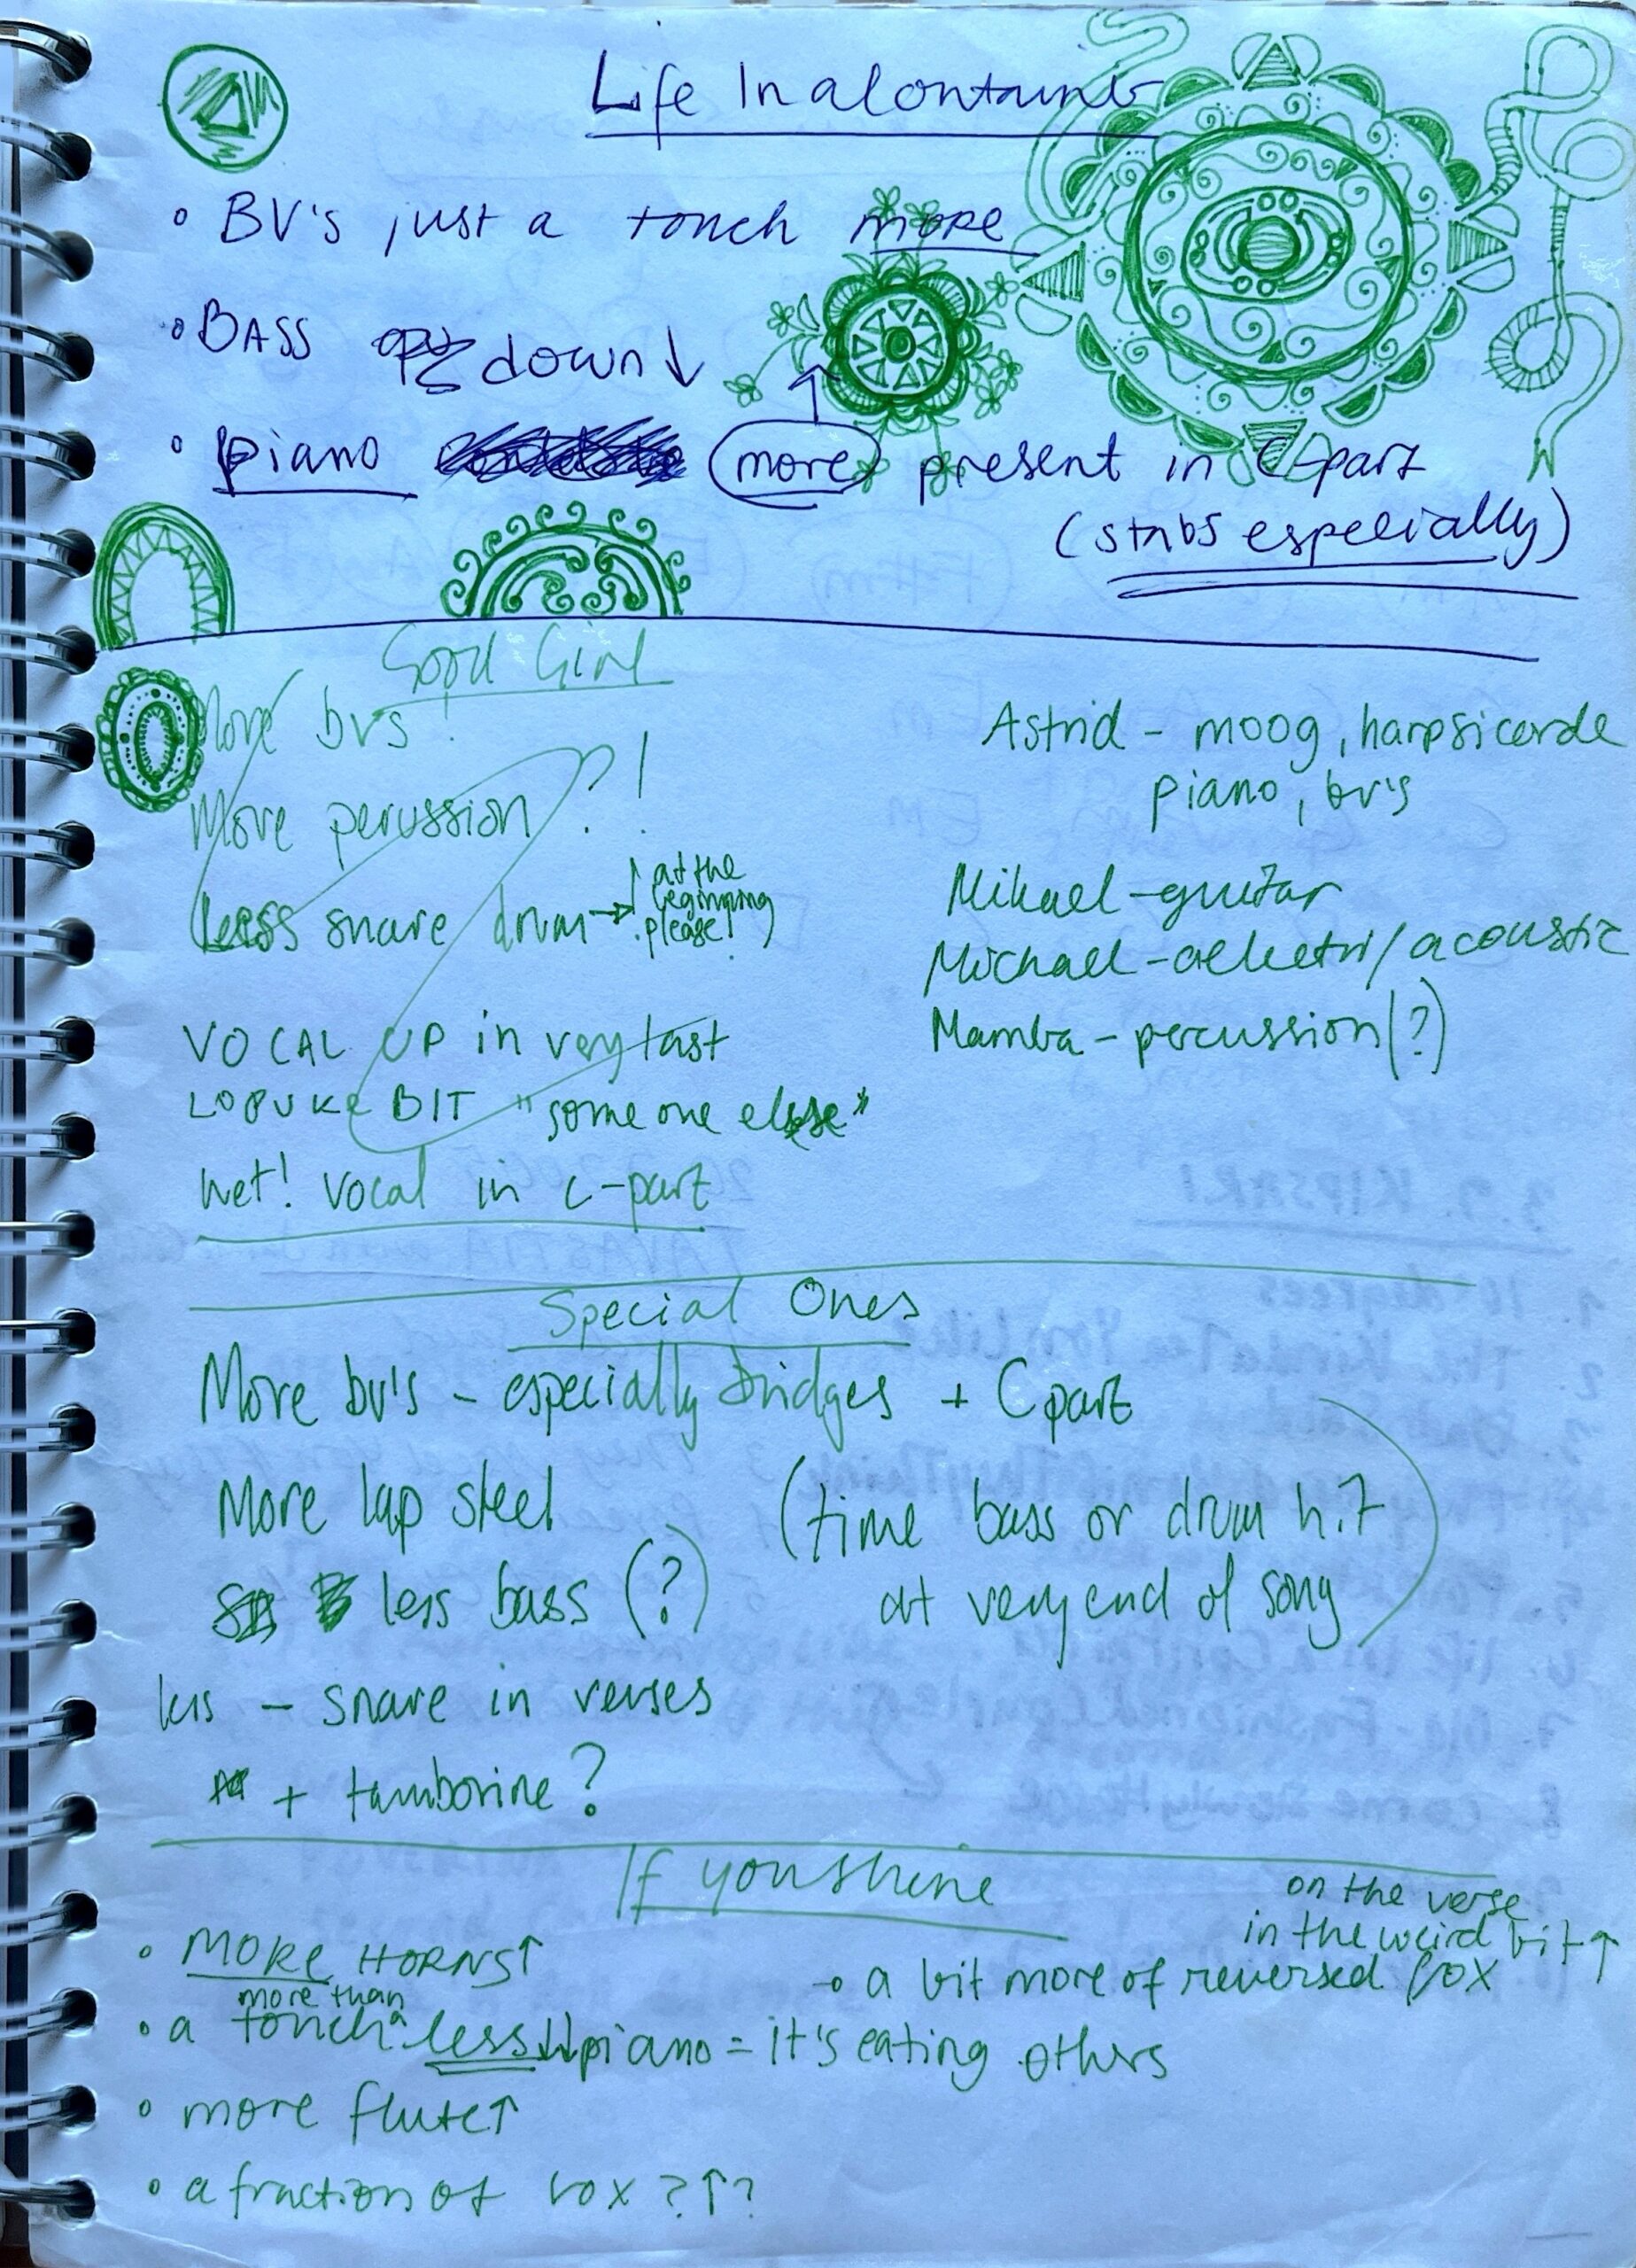 Life In a Container
• BV's just a touch more
• BASS down ↓
• piano more present in C-part
(stabs especially)
Good Girl
More bvs!
More perussion?!
Less snare drum → at the
beginning
please!
VOCAL UP in very last
LOPUKE BIT "someone else"
wet! vocal in c-part
Astrid - moog, harpsicorde
piano, bv's
Mikael - guitar
Michael - / acoustic
Mamba - percussion (?)
Special Ones
More bv's - especially bridges + C part
More lap steel
less bass (?)
(time bass or drum hit
at very end of song)
less - snare in verses
+ tamborine?
If you shine
• MORE HORNS↑
more than
• a touch less↓↓ piano = it's eating others
• more flute↑
• a fraction of vox ?↑?
on the verse
in the weird bit↑
→ a bit more of reversed vox